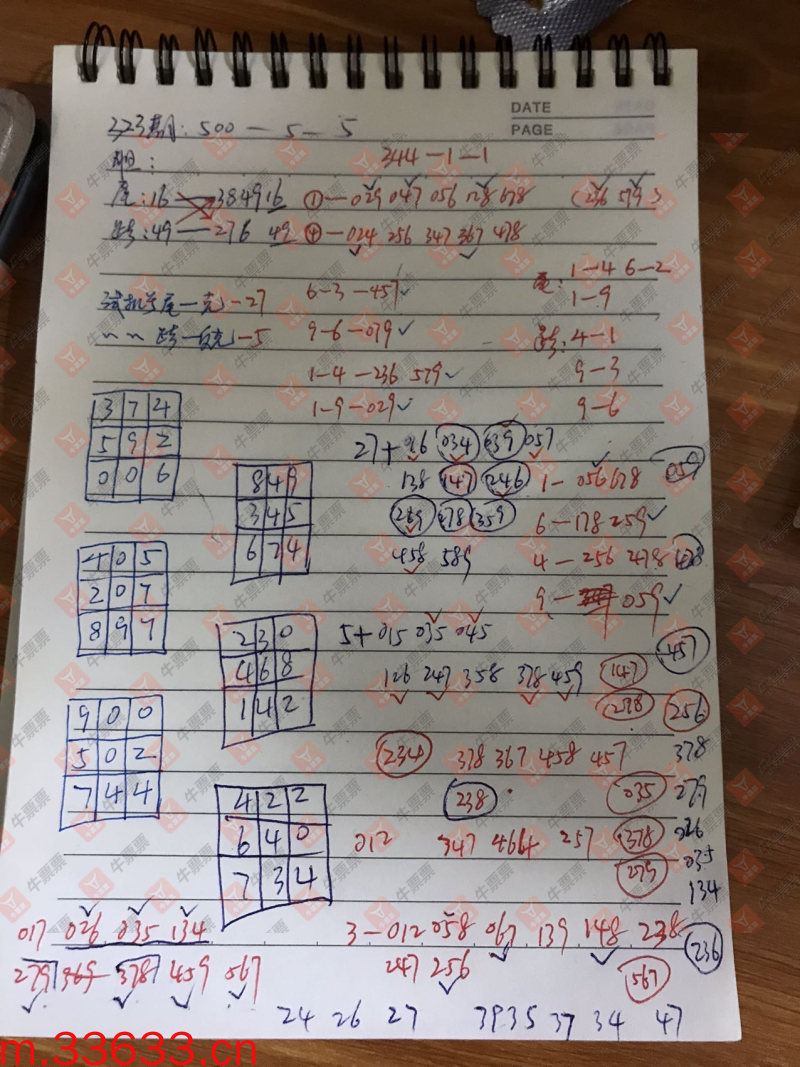 DATE
PAGE
223期: 500-5-5
胆:
344-1-1
尾: 16 384916 ①-029 047 056 128 678 (236 579)
跨: 49-276 49 ④-024 256 347 367 478
尾: 1-4 6-2
1-9
6-3-457
试机号尾一克-27
9-6-079
跨: 4-1
〃〃跨一克-5
1-4-236 579
9-3
1-9-029
9-6
1 3 7 4
5 9 2
0 0 6
27+026 034 039 057
138 147 246
1-056 678
059
289 178 359
6-178 259
458 589
4-256 478
478
9-059
8 4 9
3 4 5
6 7 4
4 0 5
2 0 7
8 9 7
5+015 035 045
457
126 247 358 378 459
147
238
256
2 3 0
4 6 8
1 4 2
9 0 0
5 0 2
7 4 4
234 378 367 458 457
378
238
035
279
012 347 464 257
378
026
279
035
134
4 2 2
6 4 0
7 3 4
017 026 035 134
3-012 058 067 139 148 238
236
279 369 378 459 567
247 256
567
24 26 27 39 35 37 34 47
牛票票
m.33633.cn